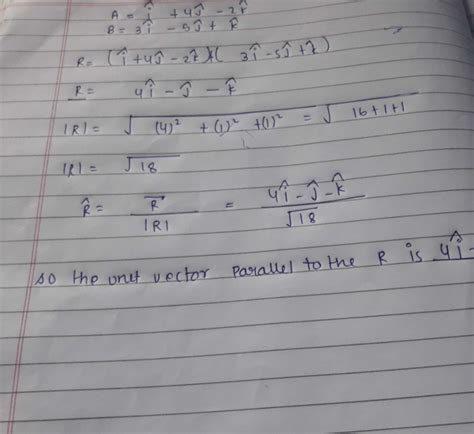 A = î + 4ĵ - 2k̂
B = 3î - 5ĵ + k̂
R = (î + 4ĵ - 2k̂) + ( 3î - 5ĵ + k̂)
R = 4î - ĵ - k̂
|R| = √(4)² + (1)² + (1)² = √16 + 1 + 1
|R| = √18
R̂ = R⃗ / |R| = 4î - ĵ - k̂ / √18
so the unit vector parallel to the R is 4î -